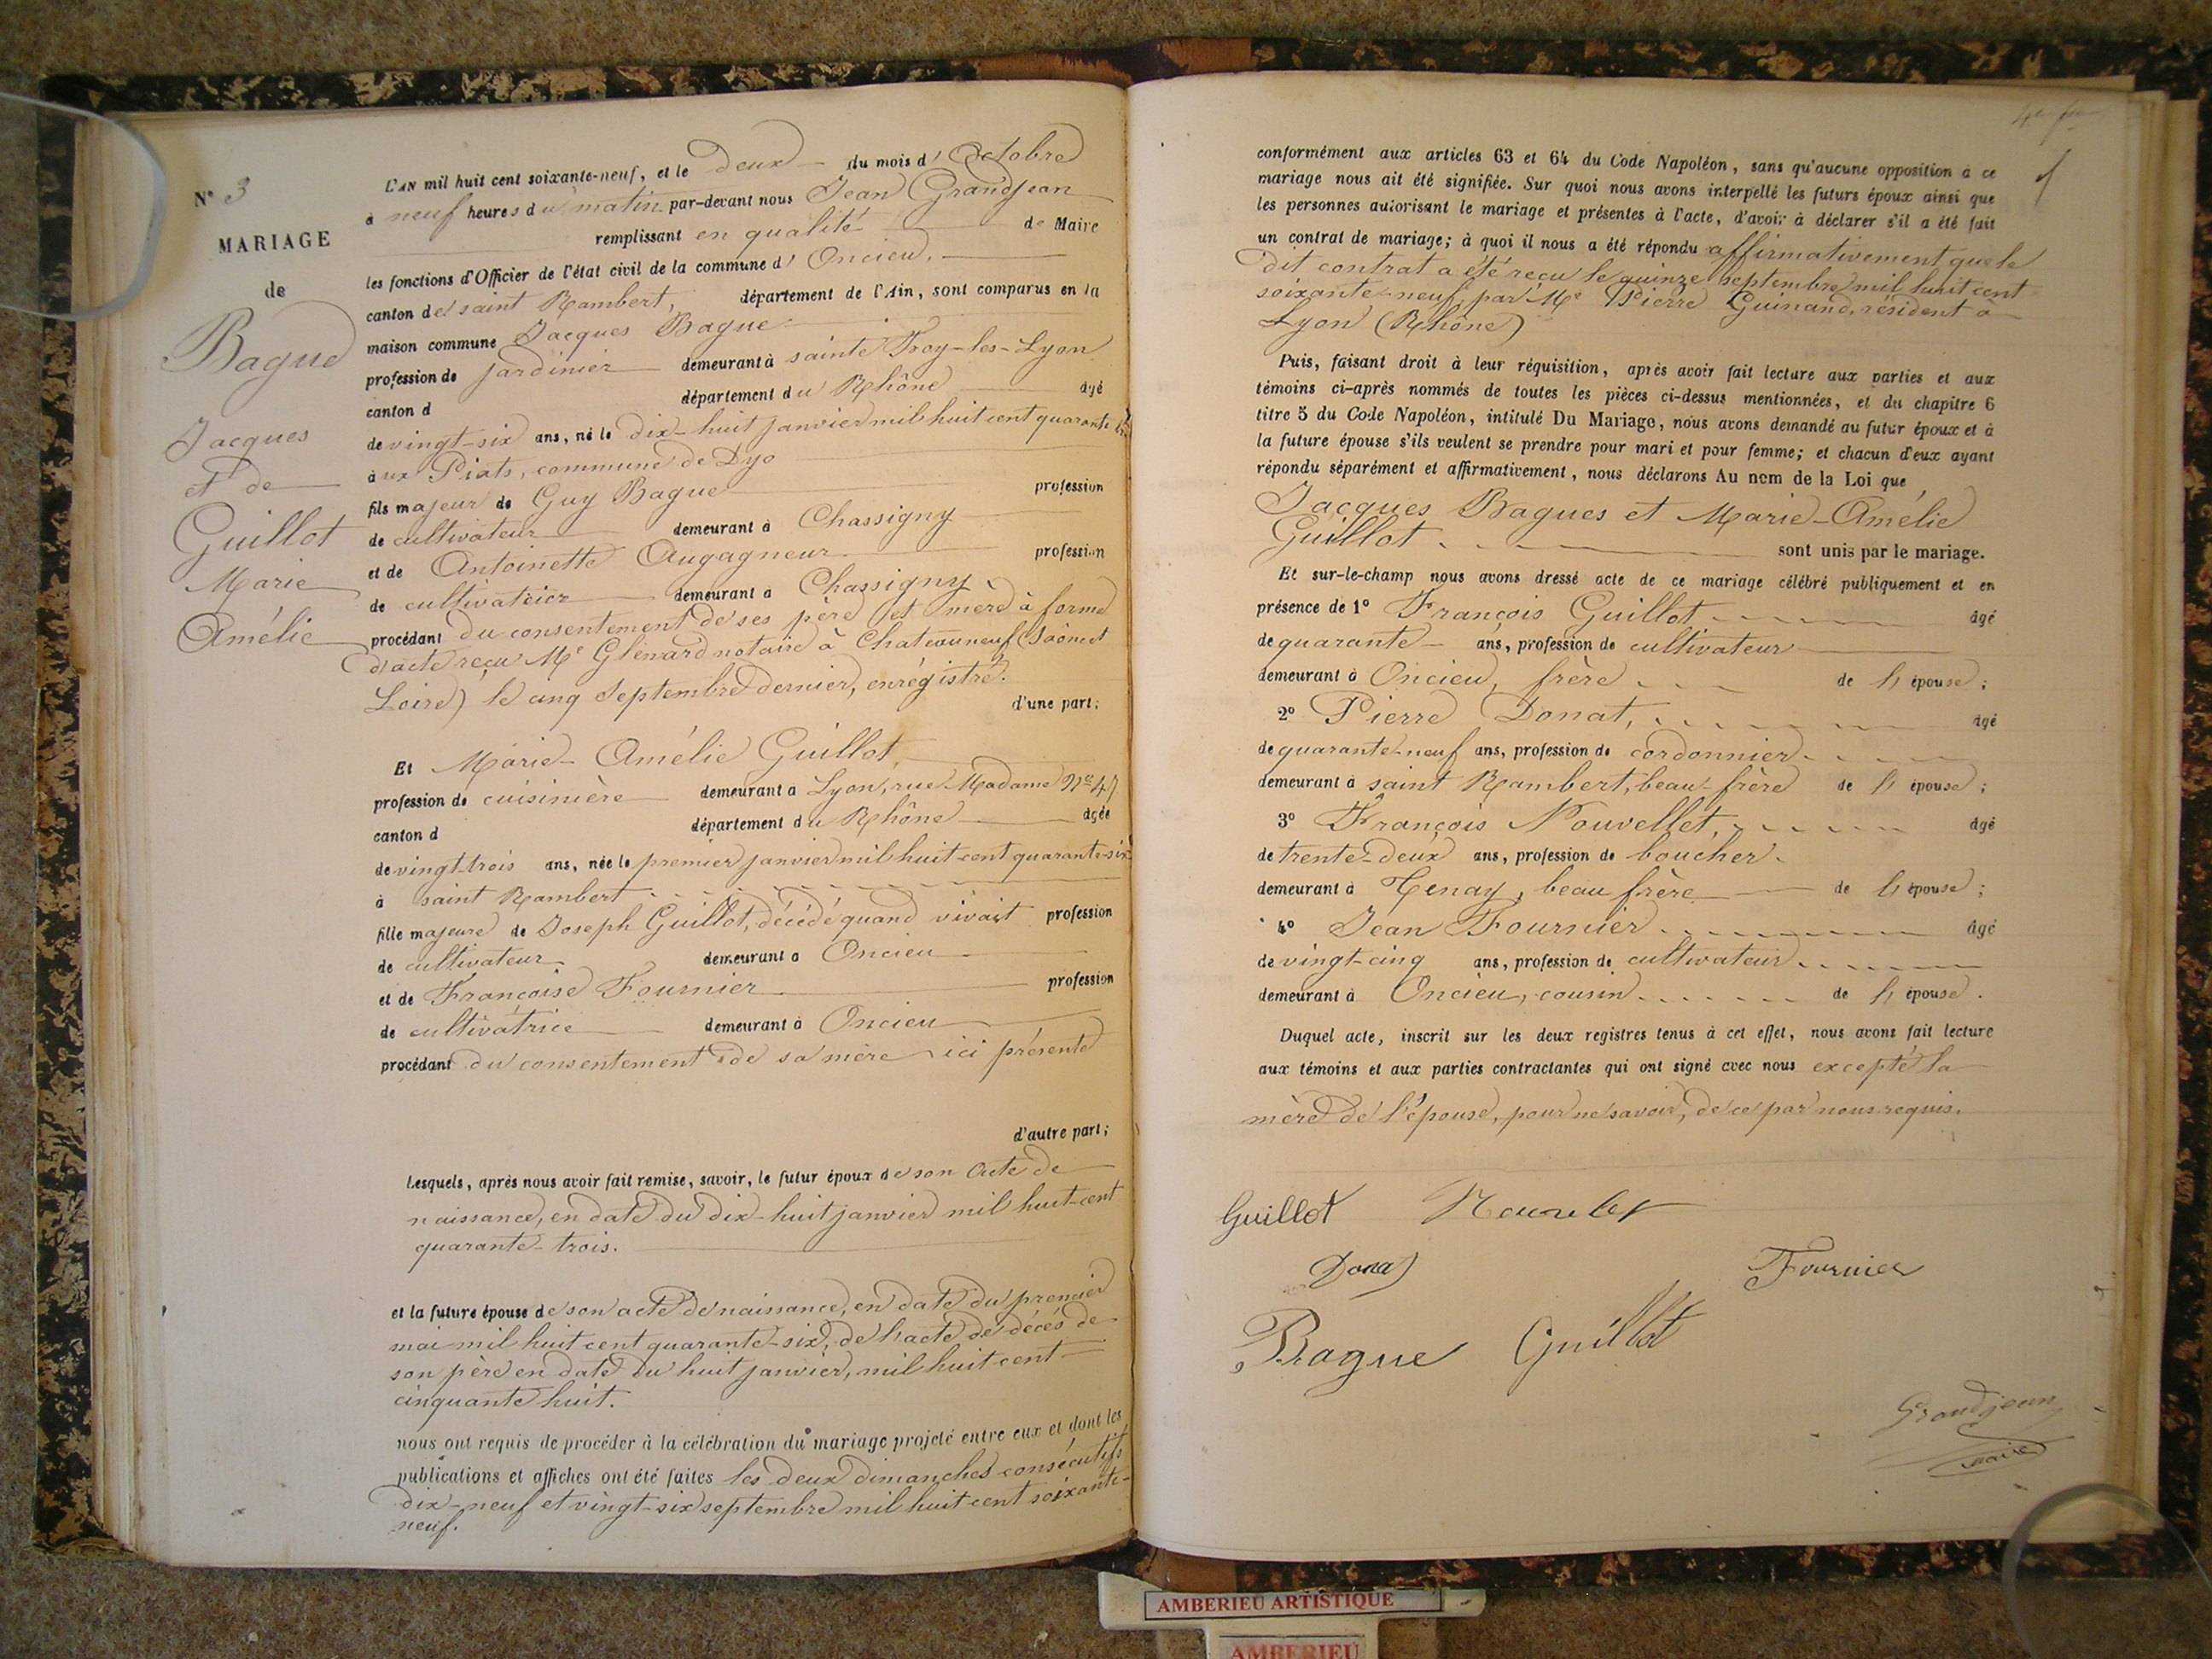 N° 3
MARIAGE
de
Bague
Jacques
et de
Guillot
Marie
Amélie
L'AN mil huit cent soixante-neuf, et le deux du mois d'Octobre
à neuf heures du matin par-devant nous Jean Grandjean
remplissant en qualité de Maire
les fonctions d'Officier de l'état civil de la commune d'Oncieu,
canton de saint Rambert, département de l'Ain, sont comparus en la
maison commune Jacques Bague
profession de jardinier demeurant à sainte Froy-les-Lyon
canton d département du Rhône âgé
de vingt-six ans, né le dix-huit janvier mil huit cent quarante
aux Piats, commune de Dyo
fils majeur de Guy Bague profession
de cultivateur demeurant à Chassigny
et de Antoinette Augagneur profession
de demeurant à Chassigny
procédant du consentement de ses père et mère à forme
d'acte reçu Me Glenard notaire à Chateauneuf (Saône et
Loire) le cinq Septembre dernier, enrégistré.
d'une part;
Et Marie-Amélie Guillot,
profession de cuisinière demeurant à Lyon, rue Madame N° 47
canton d département du Rhône âgée
de vingt-trois ans, née le premier janvier mil huit cent quarante-six
à saint Rambert
fille majeure de Joseph Guillot, décédé quand vivait profession
de cultivateur demeurant à Oncieu
et de Françoise Fournier profession
de cultivatrice demeurant à Oncieu
procédant du consentement de sa mère ici présente
d'autre part;
Lesquels, après nous avoir fait remise, savoir, le futur époux de son acte de
naissance, en date du dix-huit janvier mil huit-cent
quarante-trois.
et la future épouse de son acte de naissance, en date du premier
mai mil huit cent quarante-six, de l'acte de décés de
son père en date du huit janvier, mil huit cent
cinquante huit.
nous ont requis de procéder à la célébration du mariage projeté entre eux et dont les
publications et affiches ont été faites les deux dimanches consécutifs
dix-neuf et vingt-six septembre mil huit cent soixante-
neuf.
conformément aux articles 63 et 64 du Code Napoléon, sans qu'aucune opposition à ce
mariage nous ait été signifiée. Sur quoi nous avons interpellé les futurs époux ainsi que
les personnes autorisant le mariage et présentes à l'acte, d'avoir à déclarer s'il a été fait
un contrat de mariage; à quoi il nous a été répondu affirmativement que le
dit contrat a été reçu le quinze septembre mil huit cent
soixante-neuf, par Me Pierre Guinand, résident a
Lyon (Rhône)
Puis, faisant droit à leur réquisition, après avoir fait lecture aux parties et aux
témoins ci-après nommés de toutes les pièces ci-dessus mentionnées, et du chapitre 6
titre 5 du Code Napoléon, intitulé Du Mariage, nous avons demandé au futur époux et à
la future épouse s'ils veulent se prendre pour mari et pour femme; et chacun d'eux ayant
répondu séparément et affirmativement, nous déclarons Au nom de la Loi que
Jacques Bagues et Marie-Amélie
Guillot sont unis par le mariage.
Et sur-le-champ nous avons dressé acte de ce mariage célébré publiquement et en
présence de 1° François Guillot, âgé
de quarante ans, profession de cultivateur
demeurant à Oncieu, frère de l'épouse;
2° Pierre Donat, âgé
de quarante-neuf ans, profession de cordonnier
demeurant à saint Rambert, beau-frère de l'épouse;
3° François Nouvellet, âgé
de trente-deux ans, profession de boucher
demeurant à Tenay, beau frère de l'épouse;
4° Jean Fournier âgé
de vingt-cinq ans, profession de cultivateur
demeurant à Oncieu, cousin de l'épouse.
Duquel acte, inscrit sur les deux registres tenus à cet effet, nous avons fait lecture
aux témoins et aux parties contractantes qui ont signé avec nous excepté la
mère de l'épouse, pour ne savoir, de ce par nous requis.
Guillot
Donat Fournier
Bague Guillot
Grandjean
maire
AMBERIEU ARTISTIQUE
AMBERIEU